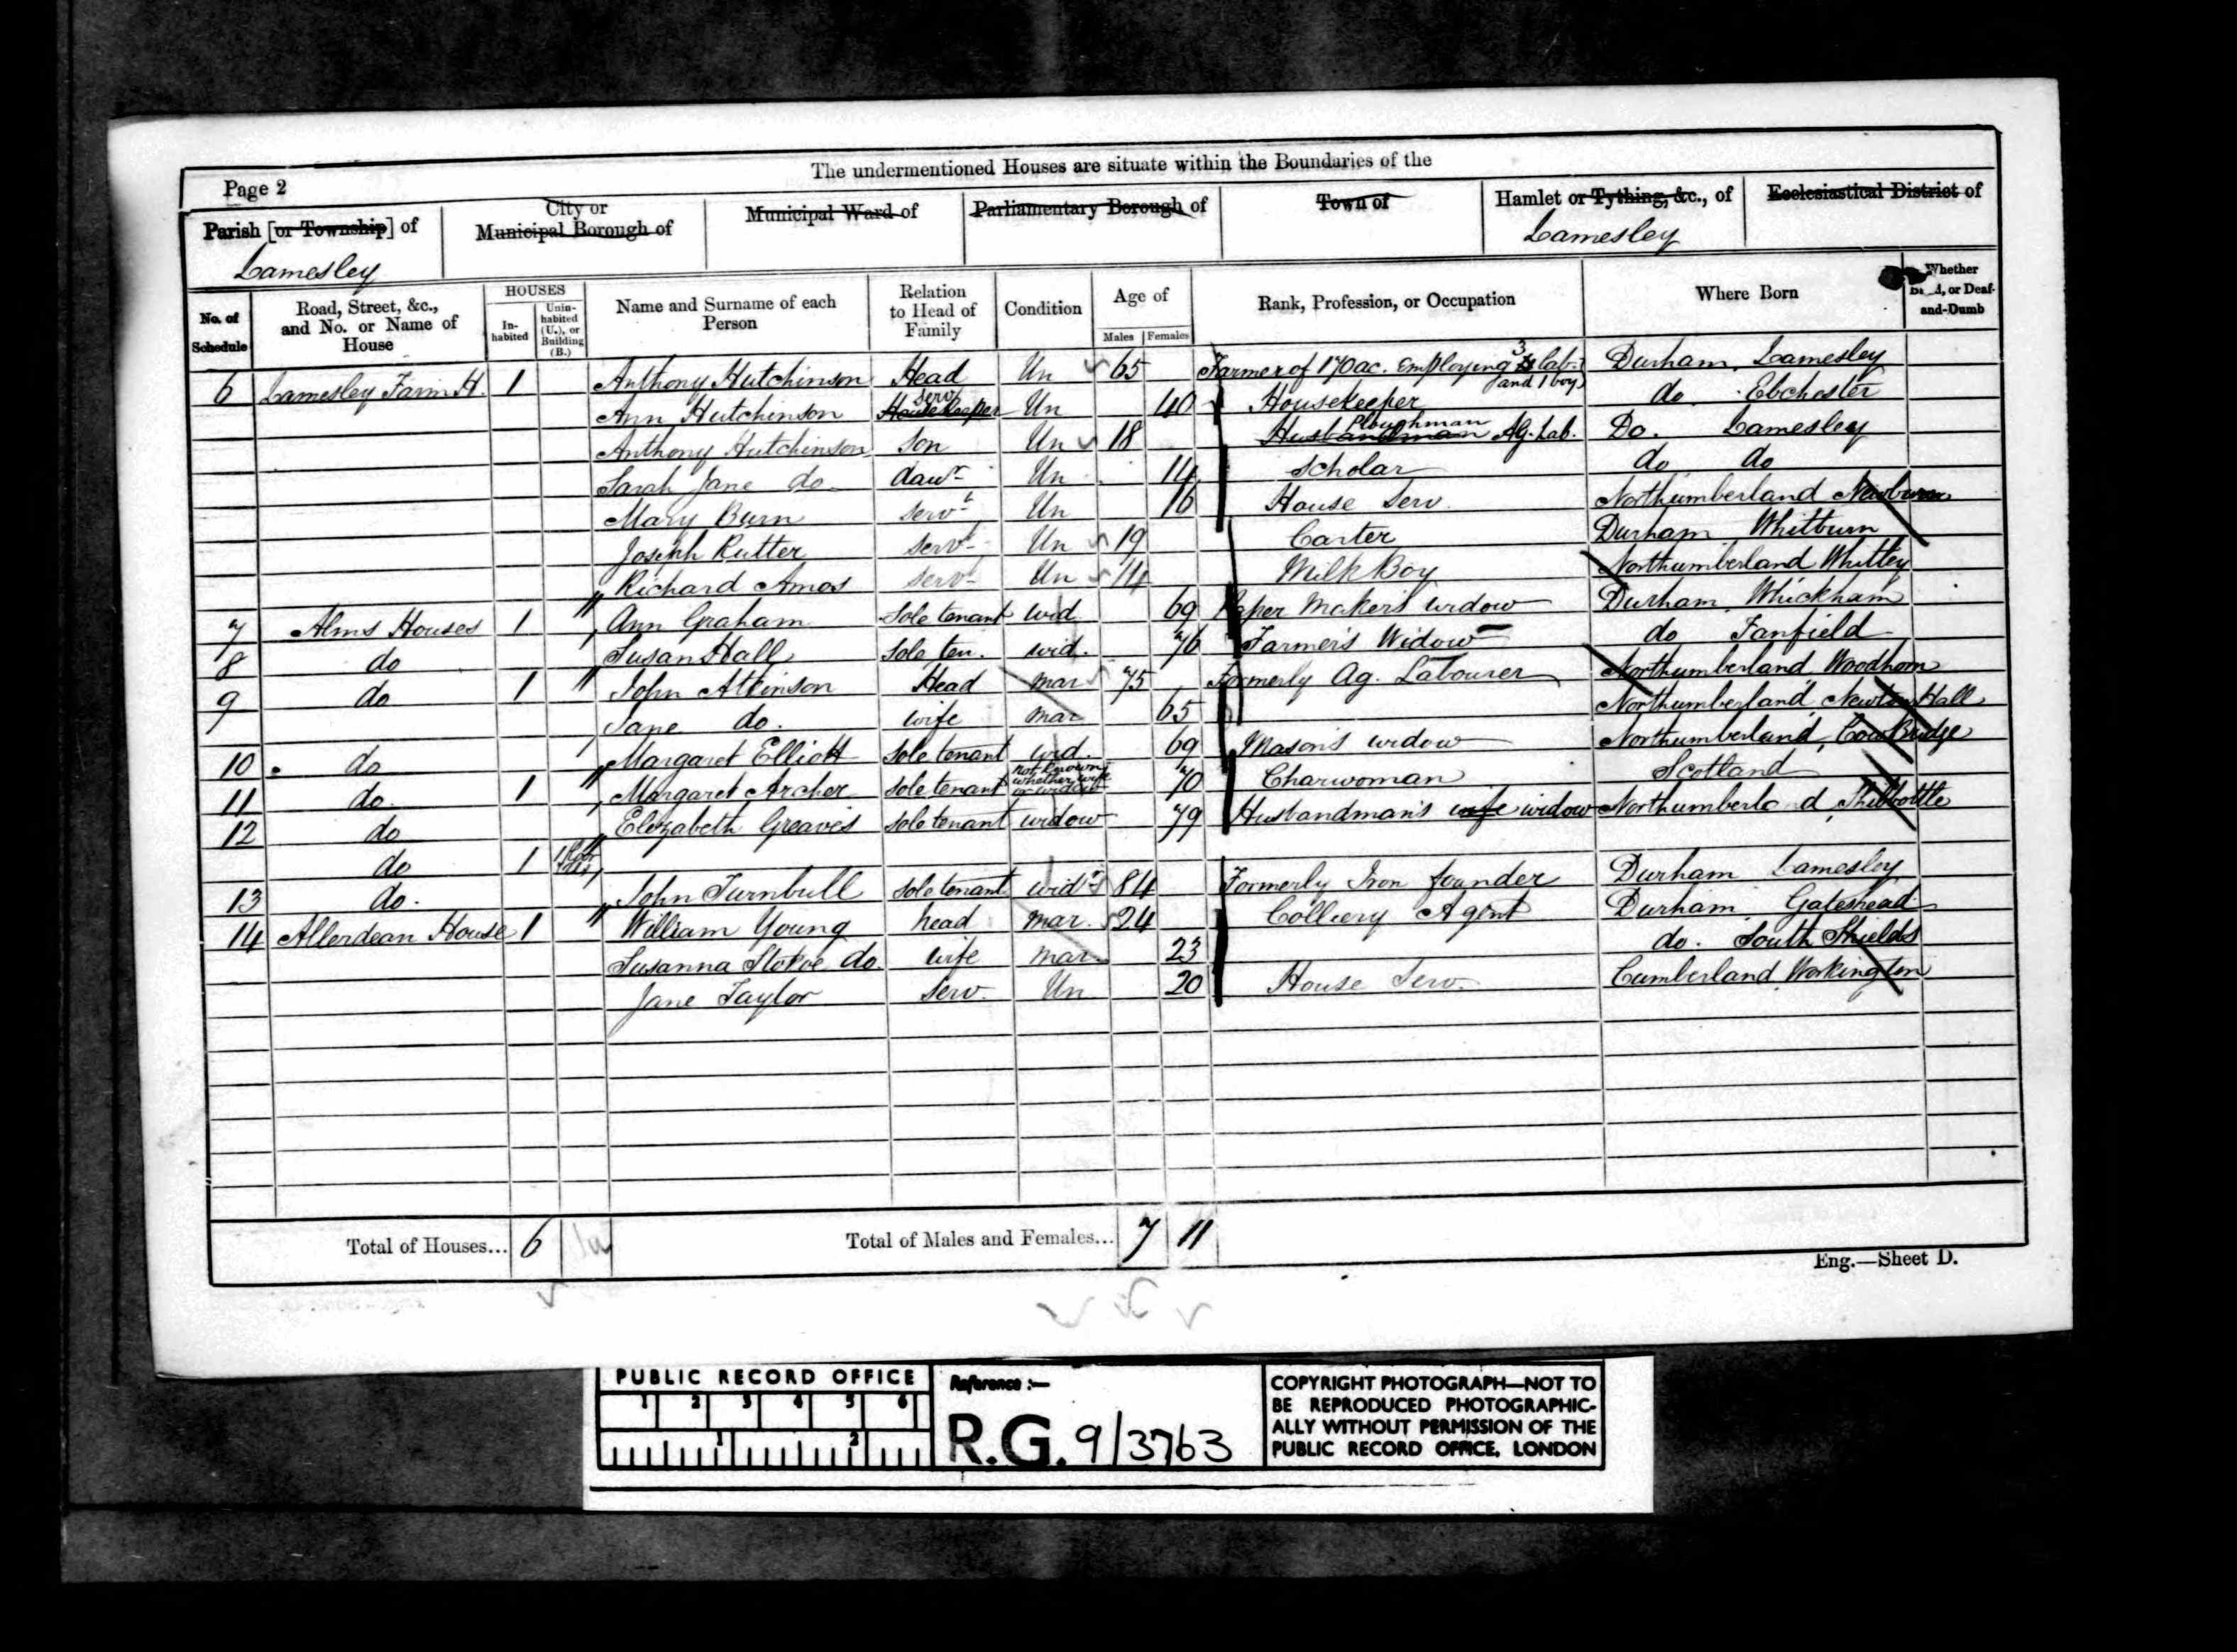 The undermentioned Houses are situate within the Boundaries of the
Page 2
Parish [or Township] of
City or Municipal Borough of
Municipal Ward of
Parliamentary Borough of
Town of
Hamlet or Tything, &c., of
Ecclesiastical District of
Lamesley
Lamesley
No. of Schedule
Road, Street, &c., and No. or Name of House
HOUSES
In-habited
Unin-habited (U.), or Building (B.)
Name and Surname of each Person
Relation to Head of Family
Condition
Age of
Males
Females
Rank, Profession, or Occupation
Where Born
Whether or Deaf-and-Dumb
6 Lamesley Farm H. 1 Anthony Hutchinson Head Un 65 Farmer of 170 ac. employing 3 lab. and 1 boy Durham, Lamesley
Ann Hutchinson Housekeeper Serv Un 40 Housekeeper do Ebchester
Anthony Hutchinson Son Un 18 Husbandman Ploughman Ag. Lab. Do. Lamesley
Sarah Jane do daur Un 14 Scholar do do
Mary Burn Servt Un 16 House Serv. Northumberland Newburn
Joseph Rutter Servt Un 19 Carter Durham Whitburn
Richard Amos Servt Un 14 Milk Boy Northumberland Whitley
7 Alms Houses 1 Ann Graham Sole tenant wid 69 Paper Maker's widow Durham, Whickham
8 do Susan Hall Sole ten. wid. 76 Farmer's Widow do Tanfield
9 do 1 John Atkinson Head mar 75 Formerly Ag. Labourer Northumberland Woodhorn
Jane do. wife mar 65 Northumberland, Newton Hall
10 do Margaret Elliott Sole tenant wid. 69 Mason's widow Northumberland, Cow Bridge
11 do. 1 Margaret Archer Sole tenant not known whether wife or widow 70 Charwoman Scotland
12 do Elizabeth Greaves Sole tenant widow 79 Husbandman's wife widow Northumberland, Shilbottle
do 1
13 do. John Turnbull Sole tenant widr 84 Formerly Iron founder Durham Lamesley
14 Allerdean House 1 William Young head mar. 24 Colliery Agent Durham Gateshead
Susanna Stokoe do. wife mar. 23 do. South Shields
Jane Taylor Serv. Un 20 House Serv. Cumberland, Workington
Total of Houses... 6
Total of Males and Females... 7 11
Eng.—Sheet D.
PUBLIC RECORD OFFICE
1 2 3 4 5 6
1 2
Reference :—
R.G. 9/3763
COPYRIGHT PHOTOGRAPH—NOT TO
BE REPRODUCED PHOTOGRAPHIC-
ALLY WITHOUT PERMISSION OF THE
PUBLIC RECORD OFFICE, LONDON